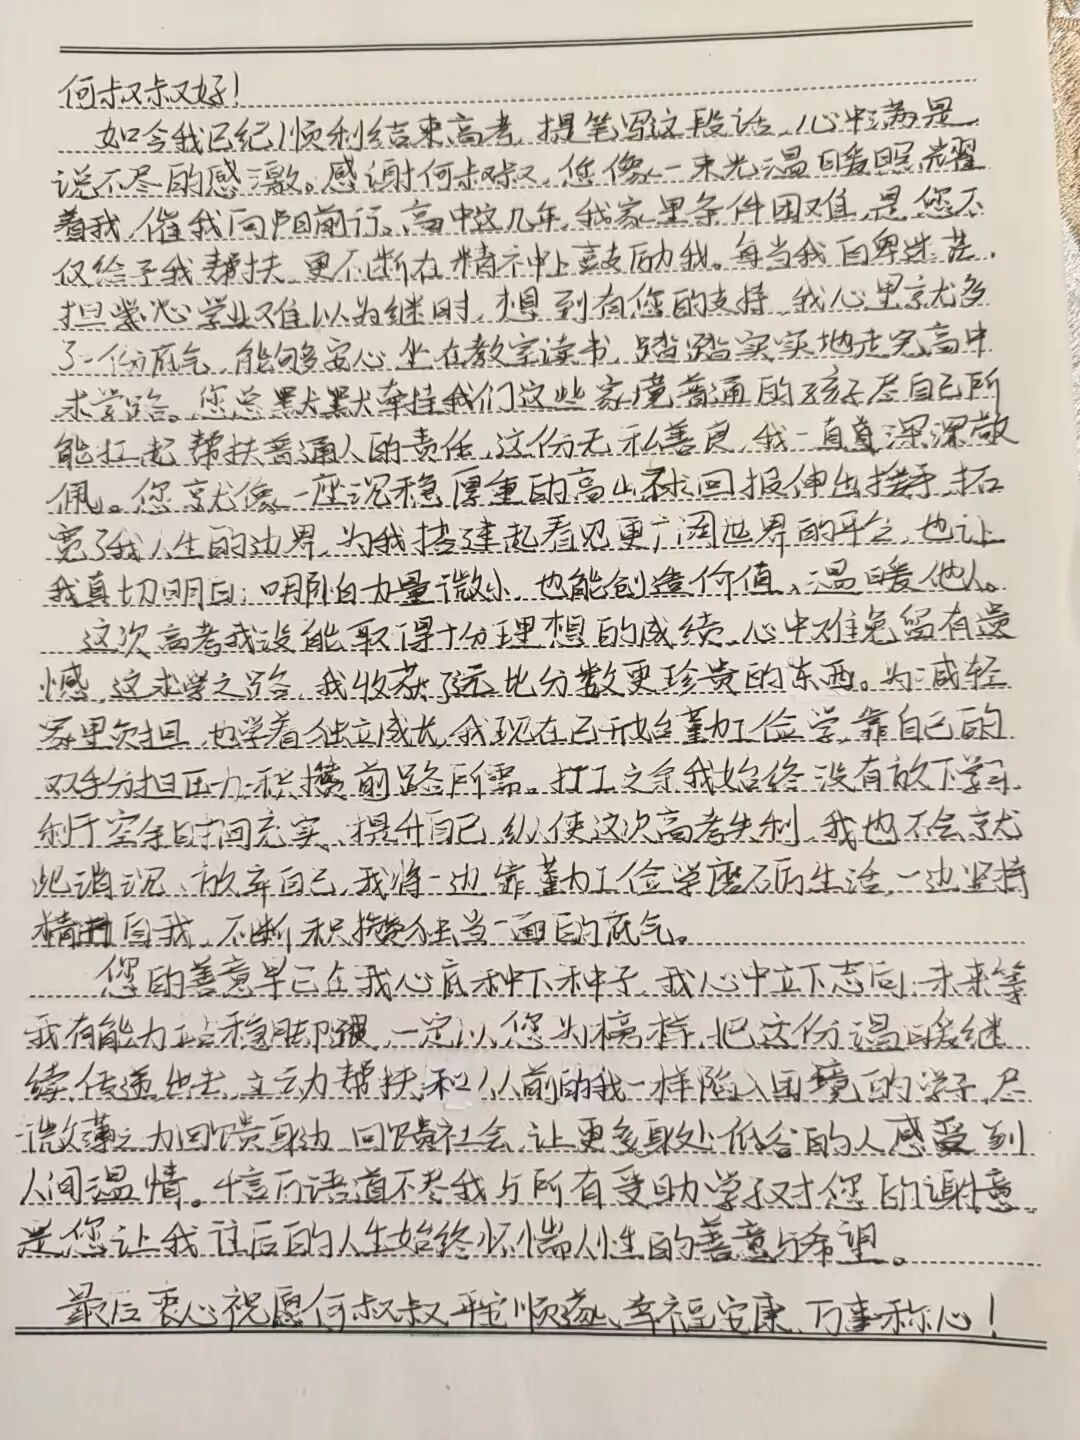 何叔叔好!
如今我已经顺利结束高考,提笔写这段话,心中满是
说不尽的感激。感谢何叔叔,您像一束光温暖照耀
着我,催我向阳前行。高中这几年,我家里条件困难,是您不
仅给予我帮扶,更不断在精神上鼓励我。每当我自卑迷茫、
担忧学业难以为继时,想到有您的支持,我心里就多
了一份底气,能够安心坐在教室读书,踏踏实实地走完高中
求学路。您总默默牵挂我们这些家境普通的孩子,尽自己所
能扛起帮扶普通人的责任,这份无私善良,我一直深深敬
佩。您就像一座沉稳厚重的高山,不求回报伸出援手,拓
宽了我人生的边界,为我搭建起看见更广阔世界的平台,也让
我真切明白:哪怕力量微小,也能创造价值、温暖他人。
这次高考我没能取得十分理想的成绩,心中难免留有遗
憾,这求学之路,我收获了远比分数更珍贵的东西。为减轻
家里负担,也学着独立成长,我现在已开始勤工俭学,靠自己的
双手分担压力,积攒前路所需。打工之余我始终没有放下学习,
利于空余时间充实、提升自己,纵使这次高考失利,我也不会就
此消沉、放弃自己,我将一边靠勤工俭学磨砺生活,一边坚持
精进自我,不断积攒独当一面的底气。
您的善意早已在我心底种下种子,我心中立下志向:未来等
我有能力站稳脚跟,一定以您为榜样,把这份温暖继
续传递出去,主动帮扶和从前的我一样陷入困境的学子,尽
微薄之力回馈身边、回馈社会,让更多身处低谷的人感受到
人间温情。千言万语道不尽我与所有受助学子对您的谢意,
是您让我往后的人生始终怀揣人性的善意与希望。
最后衷心祝愿何叔叔平安顺遂、幸福安康、万事称心!